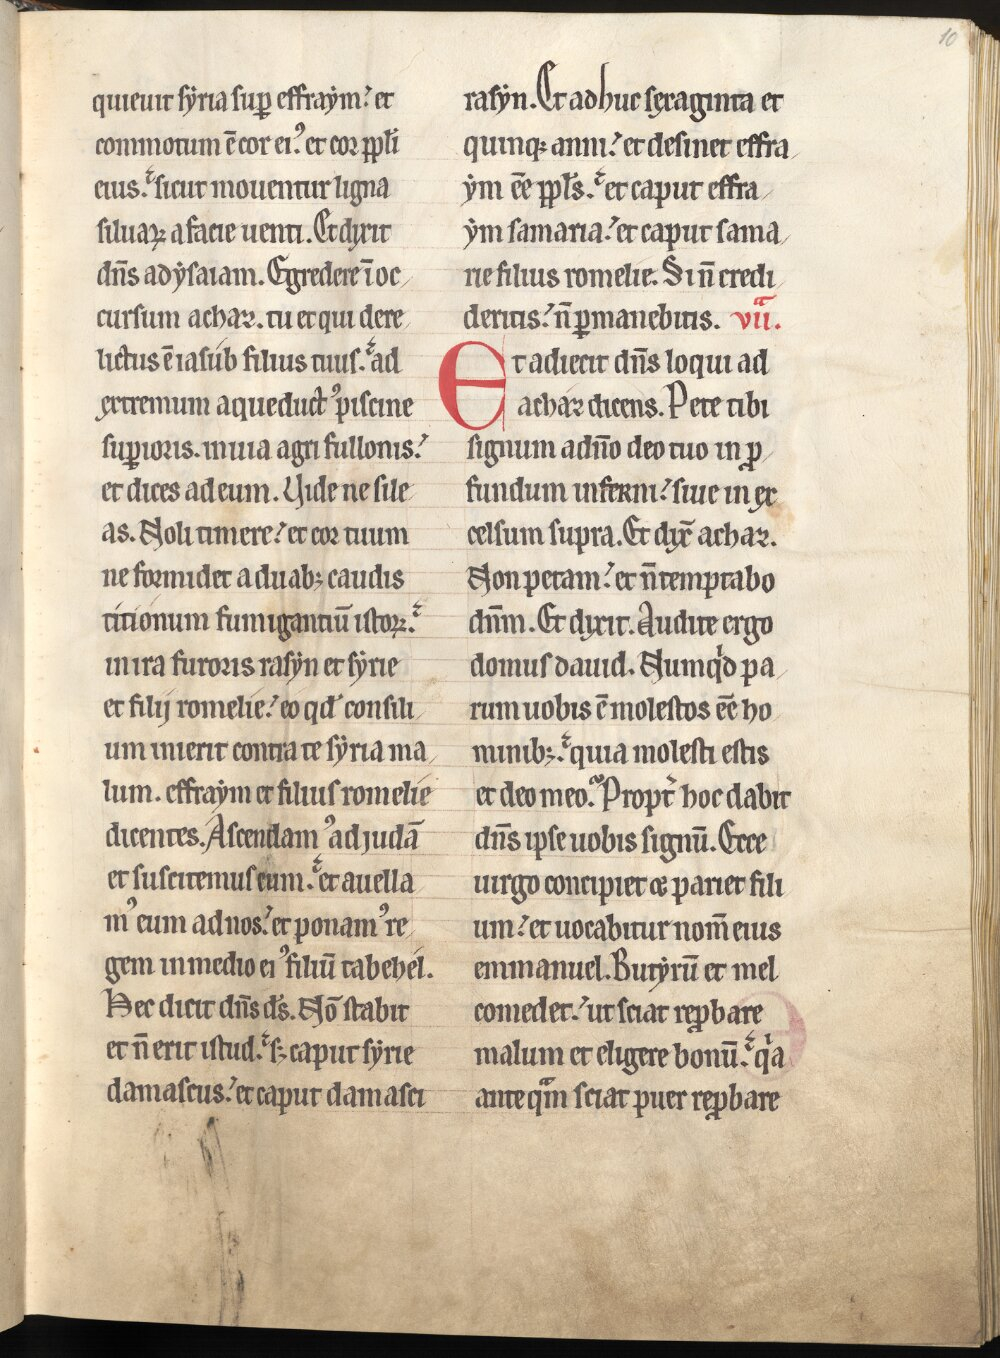 10
quieuit sẏria sup̲ effraẏm. et
commotum ē cor ei᾿. et cor pp̄li
eius. sicut mouentur ligna
siluaꝝ a facie uenti. Et dixit
dn̄s ad ẏsaiam. Egredere ī oc
cursum achaz. tu et qui dere
lictus ē iasub filius tuus. ad
extremum aqueduct᾿ piscine
suꝑioris. in uia agri fullonis.
et dices ad eum. Uide ne sile
as. Noli timere. et cor tuum
ne formidet a duabꝫ caudis
titionum fumigantiū istoꝝ.
in ira furoris rasẏn et sẏrie
et filij romelie. eo qd̄ consili
um inierit contra te sẏria ma
lum. effraẏm et filius romelie
dicentes. Ascendam᾿ ad judā
et suscitemus eum. et auella
m᾿ eum ad nos. et ponam᾿ re
gem in medio ei᾿ filiū tabehel.
Hec dicit dn̄s d̄s. Nō stabit
et n̄ erit istud. sꝫ caput sẏrie
damascus. et caput damasci
rasẏn. Et adhuc sexaginta et
quinqꝫ anni. et desinet effra
ẏm eē̄ pp̄l̄s. et caput effra
ẏm samaria. et caput sama
rie filius romelie. Si n̄ credi
deritis. n̄ ꝑmanebitis. vii.
Et adiecit dn̄s loqui ad
achaz dicens. Pete tibi
signum a dn̄o deo tuo in ꝓ
fundum inferni. siue in ex
celsum supra. Et dix̄ achaz.
Non petam. et n̄ temptabo
dn̄m. Et dixit. Audite ergo
domus dauid. Numqͥd pa
rum uobis ē molestos eē̄ ho
minibꝫ. quia molesti estis
et deo meo. Propt̄ hoc dabit
dn̄s ipse uobis signū. Ecce
uirgo concipiet & pariet fili
um. et uocabitur nom̄ eius
emmanuel. Butẏrū et mel
comedet. ut sciat reꝓbare
malum et eligere bonū. qͥa
ante qᵃm sciat puer reꝓbare